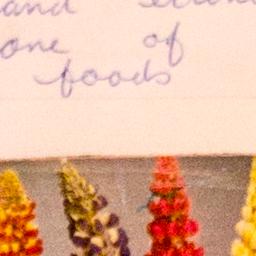 and
one of
foods